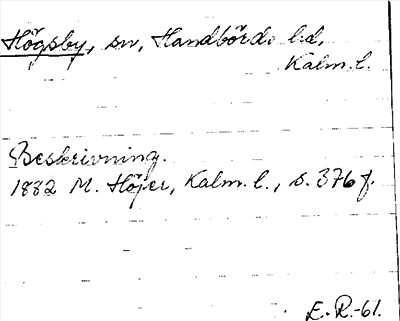 Högsby, sn, Handbörds hd,
Kalm. l.
Beskrivning.
1882 M. Höjer, Kalm. l., s. 376 f.
E. R.-61.